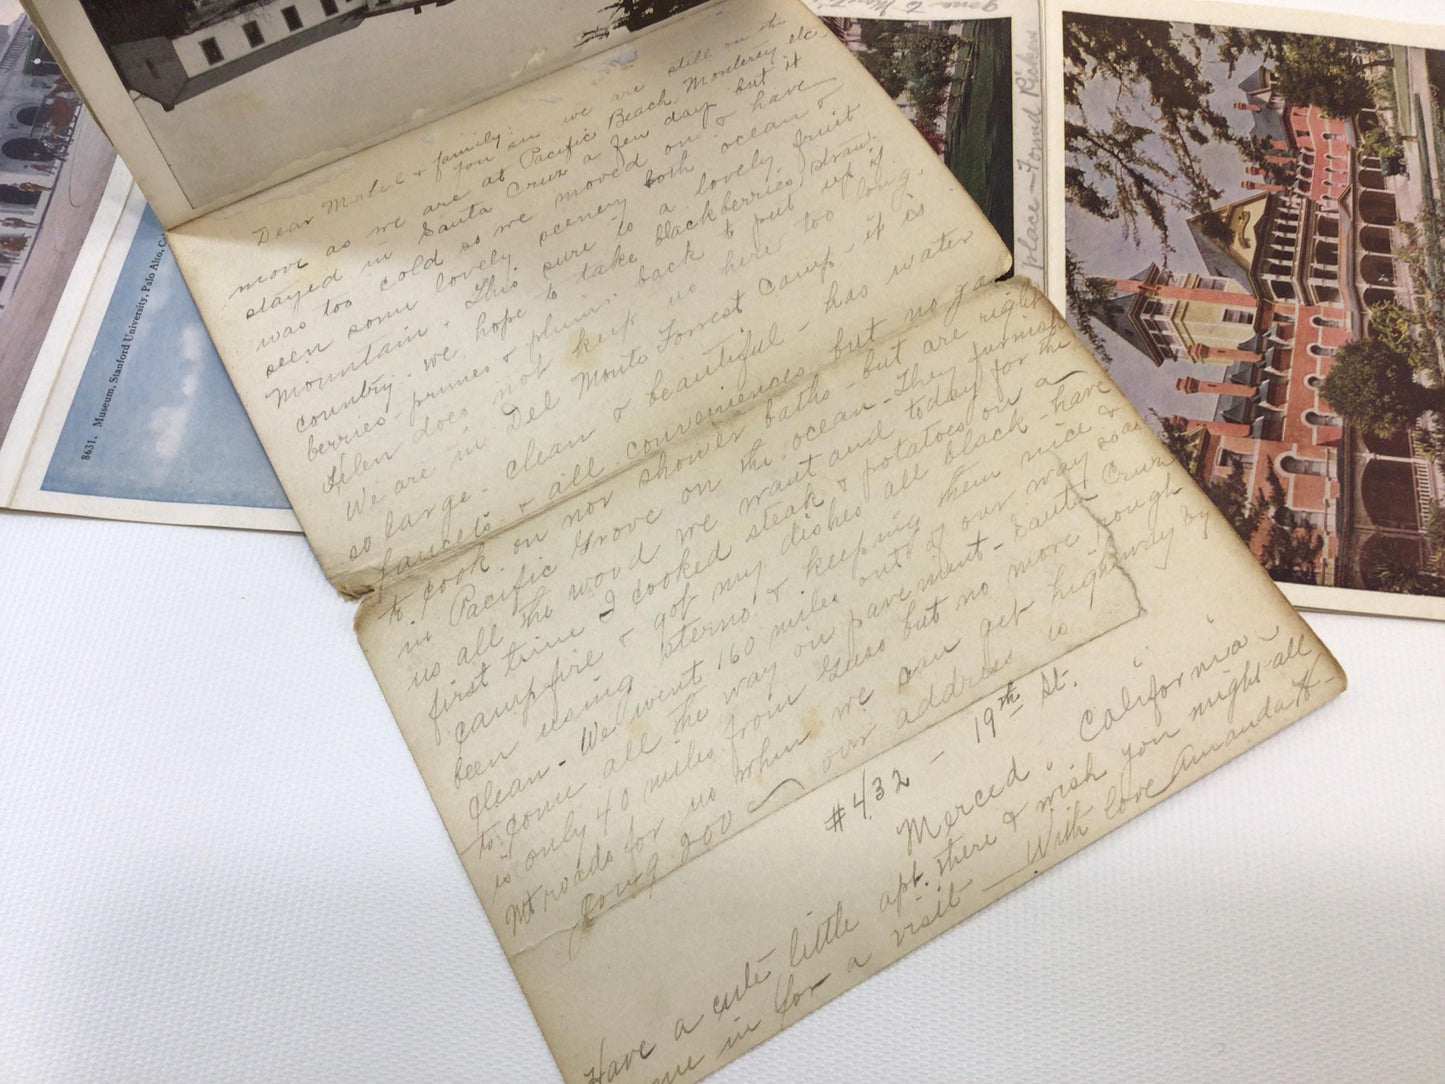 Dear Mabel & family
You see we are still on the
move as we are at Pacific Beach, Monterey etc.
stayed in Santa Cruz a few days but it
was too cold so we moved on & have
seen some lovely scenery both ocean &
mountain. This sure is a lovely fruit
country. we hope to take blackberries, straw
berries - prunes & plums back to put up if
Helen does not keep us here too long.
We are in Del Monte Forrest Camp - it is
so large - clean & beautiful - has water
faucets & all conveniences but no gas
to cook on nor shower baths - but are right
in Pacific Grove on the ocean - They furnish
us all the wood we want and today for the
first time I cooked steak & potatoes on a
campfire & got my dishes all black - have
been using sterno & keeping them nice &
clean - We went 160 miles out of our way so as
to come all the way on pavement - Santa Cruz
is only 40 miles from Guso but no more rough
Mt roads for us when we can get highway by
going 200
our address is
#432 - 19th St.
Merced, California -
Have a cute little apt. there & wish you might all
in for a visit - With love Amanda H -
8631. Museum, Stanford University, Palo Alto, Ca
gone to
place - Found Rickers